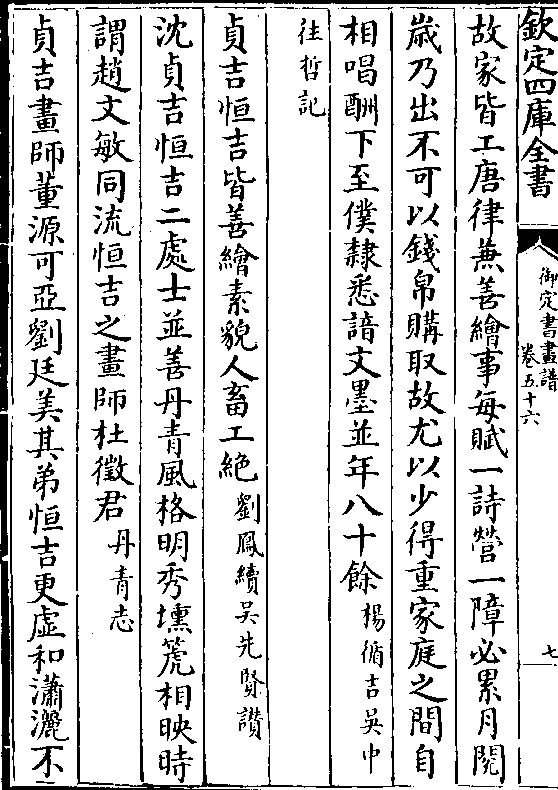 欽定四庫全書
御定書畫譜
卷五十六
七
故家皆工唐律兼善繪事每賦一詩營一障必累月閱
歲乃出不可以錢帛購取故尤以少得重家庭之間自
相唱酬下至僕隸悉諳文墨並年八十餘楊循吉吳中
往哲記
貞吉恒吉皆善繪素貌人畜工絶劉鳳續吳先賢讃
沈貞吉恒吉二處士並善丹青風格明秀壎篪相映時
謂趙文敏同流恒吉之畫師杜徵君丹青志
貞吉畫師董源可亞劉廷美其弟恒吉更虛和瀟灑不